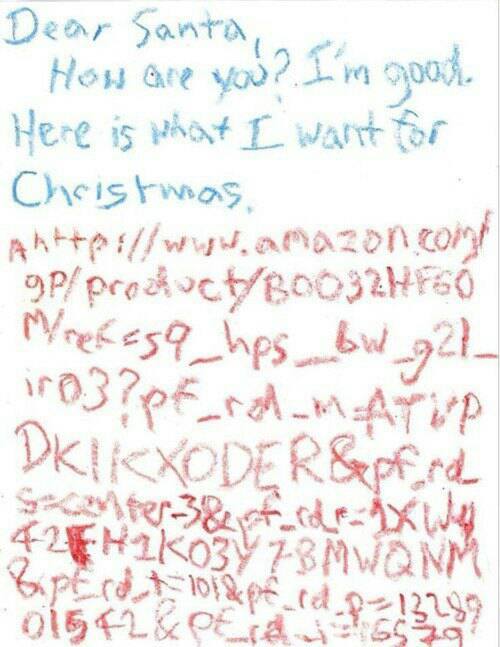 Dear Santa,
How are you? I'm good.
Here is what I want for
Christmas.
Ahttp://www.amazon.com/
gp/product/B0032HF60
M/ref=s9_hps_bw_g21_
ir03?pf_rd_m=ATVP
DKIKX0DER&pf_rd_
s=center-3&pf_rd_r=1XWY
42FH1K03Y7BMWQNM
&pf_rd_t=101&pf_rd_p=13289
01542&pf_rd_i=165579